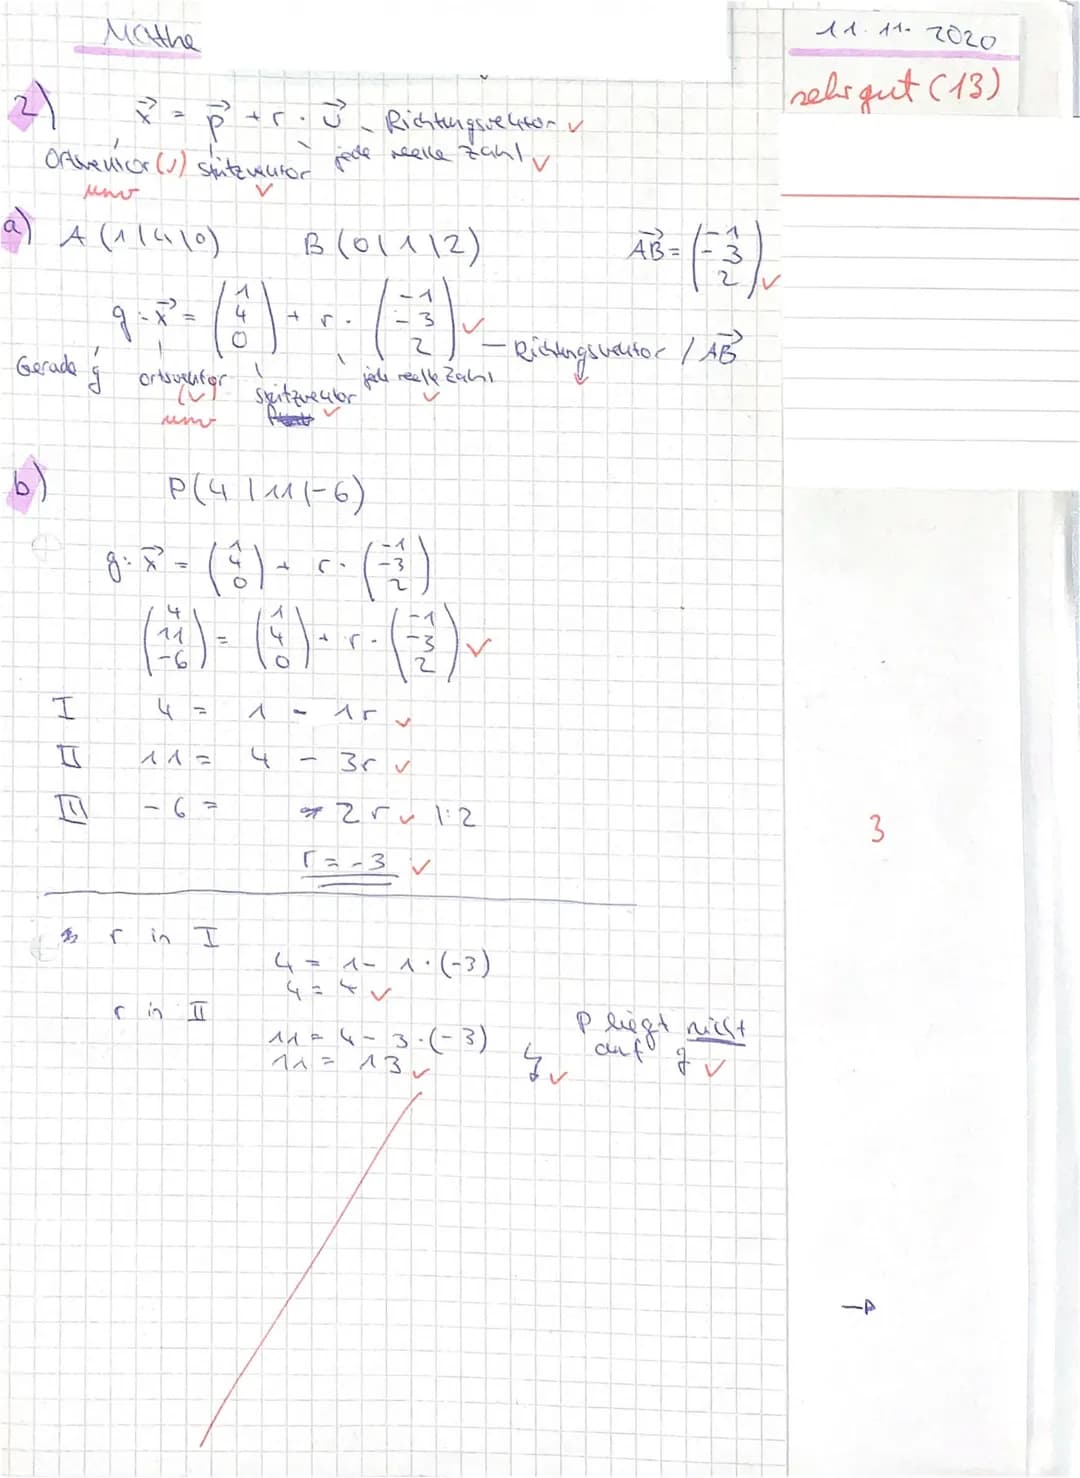 Mathe
11.11.2020
sehr gut (13)
2) x⃗ = p⃗ + r · u⃗ - Richtungsvektor ✓
Ortsvektor (✓) Stützvektor ✓ jede reelle Zahl ✓
a) A (1|4|0) B (0|1|2) AB⃗ = (-1 -3 2) ✓
g: x⃗ = (1 4 0) + r · (-1 -3 2) ✓ — Richtungsvektor / AB⃗ ✓
Gerade g Ortsvektor (✓) Stützvektor ✓ jede reelle Zahl ✓
b) P(4|11|-6)
g: x⃗ = (1 4 0) + r · (-1 -3 2)
(4 11 -6) = (1 4 0) + r · (-1 -3 2) ✓
I 4 = 1 - 1r ✓
II 11 = 4 - 3r ✓
III -6 = 2r ✓ |:2
3
r = -3 ✓
r in I
4 = 1 - 1·(-3)
4 = 4 ✓
r in II
11 = 4 - 3·(-3)
11 = 13 ✓ ↯ ✓
P liegt nicht
auf g ✓
→